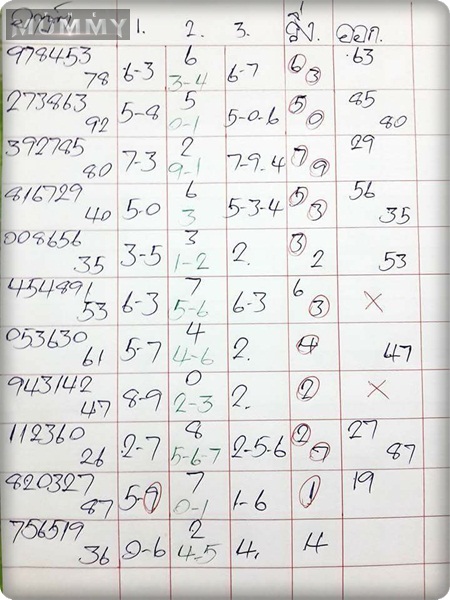 MUMMY
1. 2. 3. ออก.
978453 6 63
78 6-3 3-4 6-7 6 3
273863 5 85
92 5-8 0-1 5-0-6 5 0 80
392785 2 29
80 7-3 9-1 7-9-4 7 9
816729 6 56
40 5-0 3 5-3-4 5 3 35
008656 3
35 3-5 1-2 2. 3 2 53
454891 7
53 6-3 5-6 6-3 6 3 ×
053630 4
61 5-7 4-6 2. 4 47
943142 0
47 8-9 2-3 2. 2 ×
112360 8 27
26 2-7 5-6-7 2-5-6 2 7 87
820327 7 19
87 5-9 0-1 1-6 1
756519 2
36 0-6 4-5 4. 4